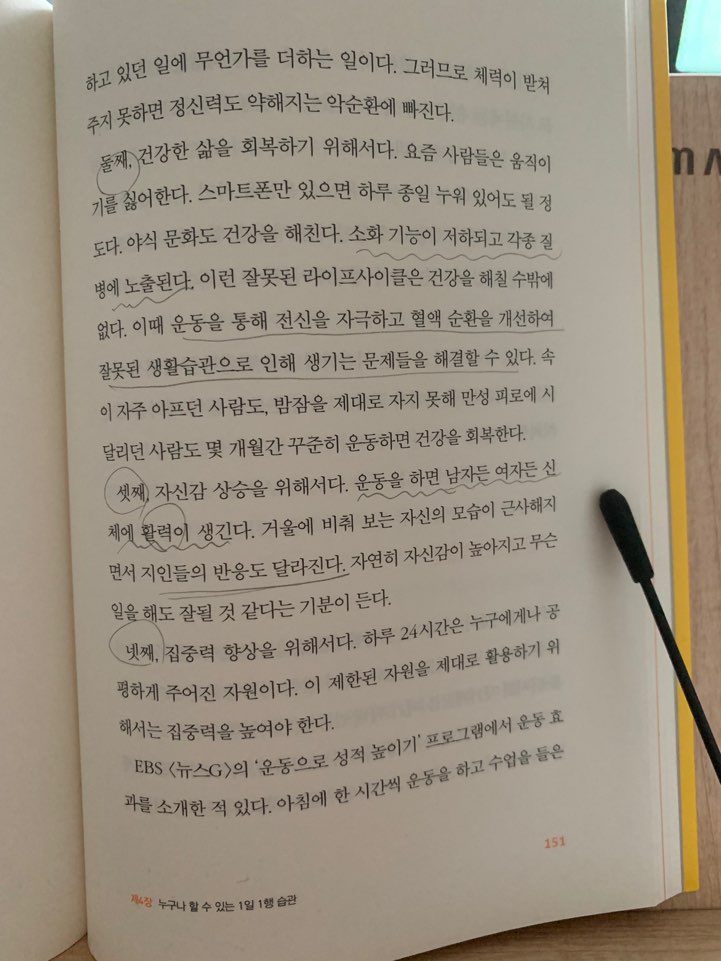 하고 있던 일에 무언가를 더하는 일이다. 그러므로 체력이 받쳐
주지 못하면 정신력도 약해지는 악순환에 빠진다.
둘째, 건강한 삶을 회복하기 위해서다. 요즘 사람들은 움직이
기를 싫어한다. 스마트폰만 있으면 하루 종일 누워 있어도 될 정
도다. 야식 문화도 건강을 해친다. 소화 기능이 저하되고 각종 질
병에 노출된다. 이런 잘못된 라이프사이클은 건강을 해칠 수밖에
없다. 이때 운동을 통해 전신을 자극하고 혈액 순환을 개선하여
잘못된 생활습관으로 인해 생기는 문제들을 해결할 수 있다. 속
이 자주 아프던 사람도, 밤잠을 제대로 자지 못해 만성 피로에 시
달리던 사람도 몇 개월간 꾸준히 운동하면 건강을 회복한다.
셋째, 자신감 상승을 위해서다. 운동을 하면 남자든 여자든 신
체에 활력이 생긴다. 거울에 비춰 보는 자신의 모습이 근사해지
면서 지인들의 반응도 달라진다. 자연히 자신감이 높아지고 무슨
일을 해도 잘될 것 같다는 기분이 든다.
넷째, 집중력 향상을 위해서다. 하루 24시간은 누구에게나 공
평하게 주어진 자원이다. 이 제한된 자원을 제대로 활용하기 위
해서는 집중력을 높여야 한다.
EBS 〈뉴스G〉의 ‘운동으로 성적 높이기’ 프로그램에서 운동 효
과를 소개한 적 있다. 아침에 한 시간씩 운동을 하고 수업을 들은
151
제4장 누구나 할 수 있는 1일 1행 습관